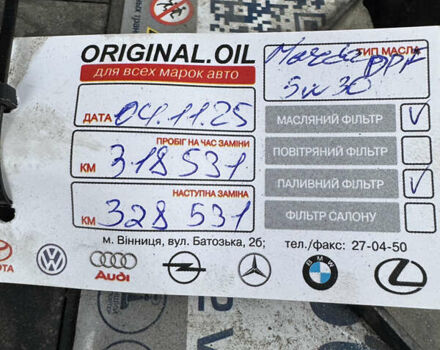 ORIGINAL.OIL
для всех марок авто
ТИП МАСЛА
Mazda DPF
5w30
ДАТА 04.11.25
ПРОБІГ НА ЧАС ЗАМІНИ
КМ 318 531
НАСТУПНА ЗАМІНА
КМ 328 531
МАСЛЯНИЙ ФІЛЬТР
ПОВІТРЯНИЙ ФІЛЬТР
ПАЛИВНИЙ ФІЛЬТР
ФІЛЬТР САЛОНУ
м. Вінниця, вул. Батозька, 2б; тел./факс: 27-04-50
OTA
Audi
BMW